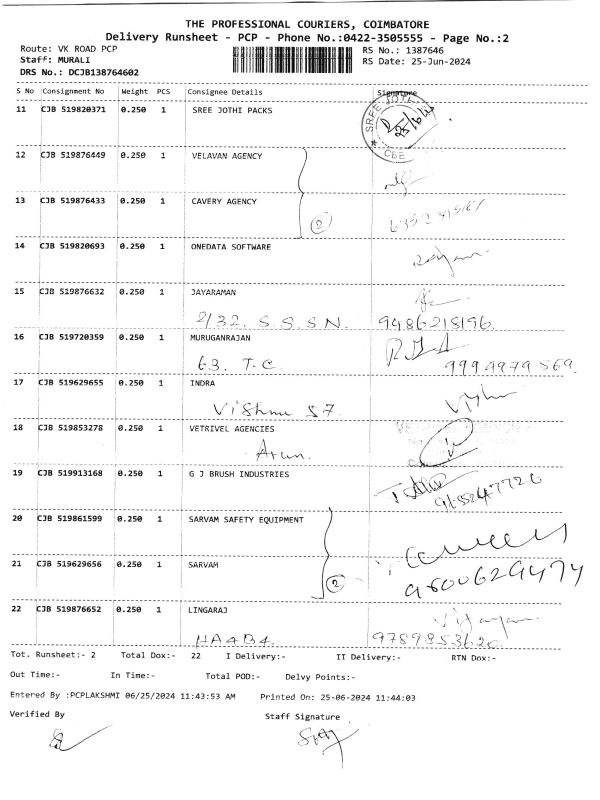 THE PROFESSIONAL COURIERS, COIMBATORE
Delivery Runsheet - PCP - Phone No.:0422-3505555 - Page No.:2
Route: VK ROAD PCP RS No.: 1387646
Staff: MURALI RS Date: 25-Jun-2024
DRS No.: DCJB138764602
S No Consignment No Weight PCS Consignee Details Signature
11 CJB 519820371 0.250 1 SREE JOTHI PACKS
SREE JOTHI
25/6/24
CBE
12 CJB 519876449 0.250 1 VELAVAN AGENCY
13 CJB 519876433 0.250 1 CAVERY AGENCY
2
14 CJB 519820693 0.250 1 ONEDATA SOFTWARE
15 CJB 519876632 0.250 1 JAYARAMAN
2/32. S.S.S.N. 9486218196.
16 CJB 519720359 0.250 1 MURUGANRAJAN
63. T.C 9994979569.
17 CJB 519629655 0.250 1 INDRA
Vishnu 57.
18 CJB 519853278 0.250 1 VETRIVEL AGENCIES
Arun.
19 CJB 519913168 0.250 1 G J BRUSH INDUSTRIES
20 CJB 519861599 0.250 1 SARVAM SAFETY EQUIPMENT
21 CJB 519629656 0.250 1 SARVAM
2 9600629474
22 CJB 519876652 0.250 1 LINGARAJ
HA4B4. 9789853620
Tot. Runsheet:- 2 Total Dox:- 22 I Delivery:- II Delivery:- RTN Dox:-
Out Time:- In Time:- Total POD:- Delvy Points:-
Entered By :PCPLAKSHMI 06/25/2024 11:43:53 AM Printed On: 25-06-2024 11:44:03
Verified By Staff Signature